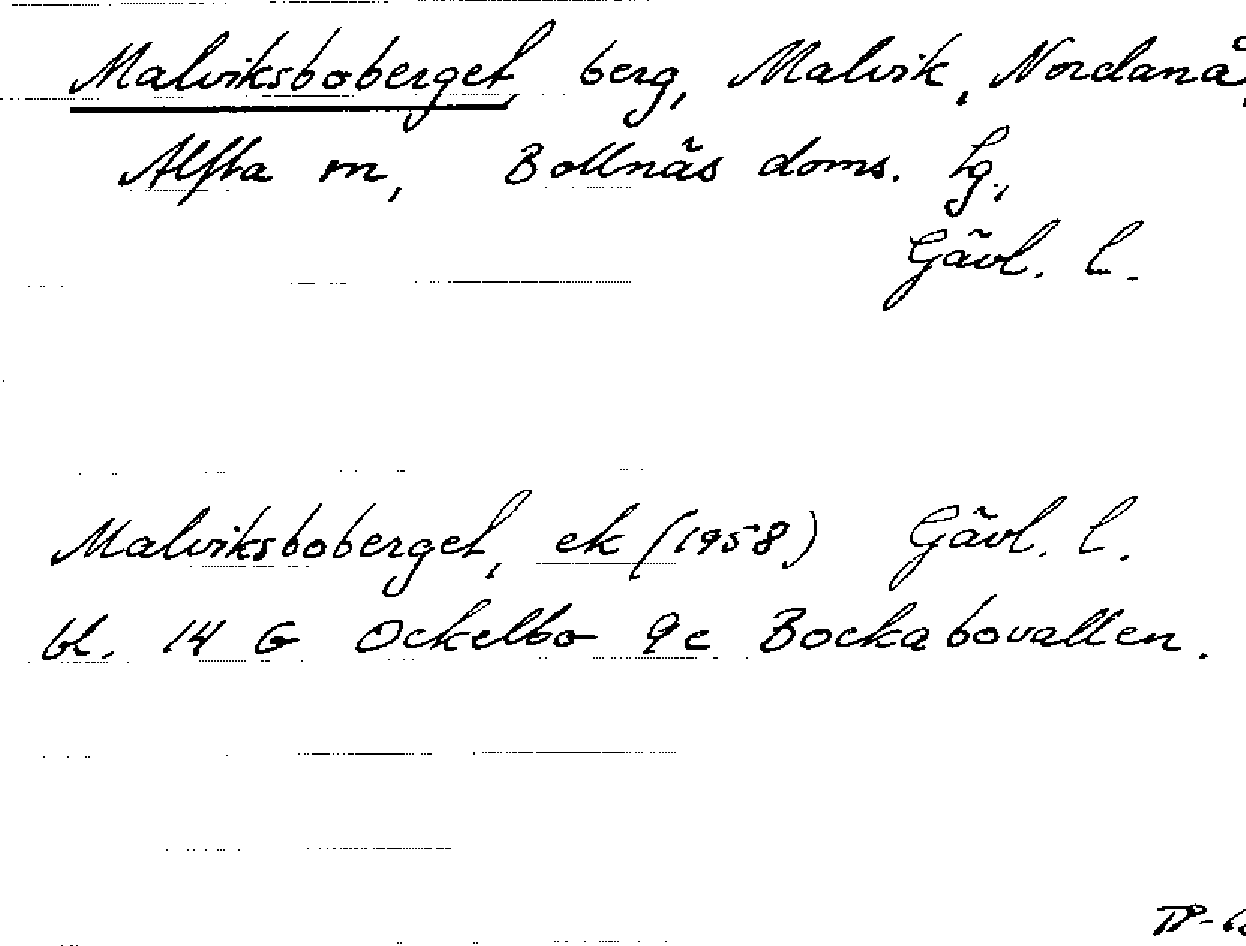 Malviksboberget, berg, Malvik, Nordanå,
Alfta sn, Bollnäs doms. lg,
Gävl. l.
Malviksboberget, ek (1958) Gävl. l.
bl. 14 G Ockelbo 9c Bockabovallen.